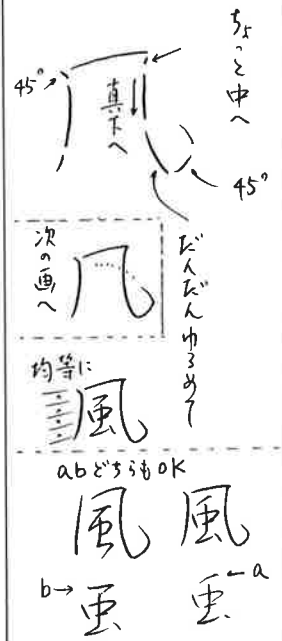 ちょっと中へ
45°
真下へ
45°
だんだんゆるめて
次の画へ
几
均等に
風
abどちらもOK
風
風
b→
a